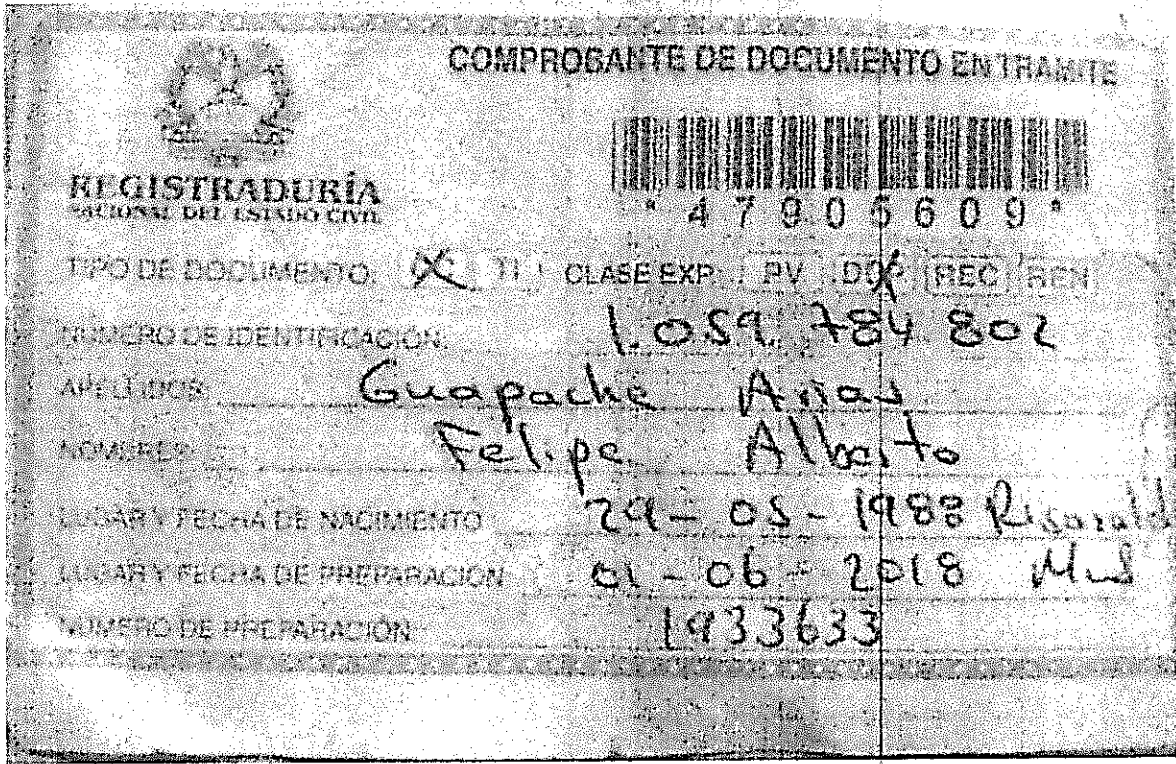 COMPROBANTE DE DOCUMENTO EN TRAMITE
REGISTRADURÍA
NACIONAL DEL ESTADO CIVIL
* 4 7 9 0 5 6 0 9 *
TIPO DE DOCUMENTO: TI CLASE EXP: PV DUP REC REN
NUMERO DE IDENTIFICACIÓN: 1.059.784 802
APELLIDOS: Guapacha Arias
NOMBRES: Felipe Alberto
LUGAR Y FECHA DE NACIMIENTO 29-05-1988 Risaralda
LUGAR Y FECHA DE PREPARACION 01-06-2018
NUMERO DE PREPARACION 1933633